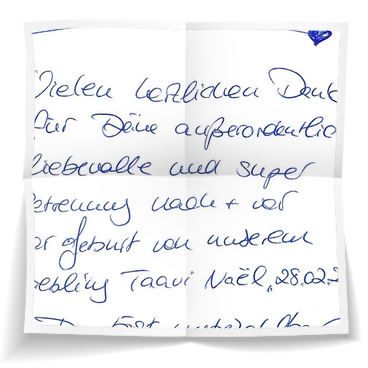 Vielen herzlichen Dank
für Deine außerordentlic
liebevolle und super
etreuung nach + vor
er Geburt von unserem
iebling Taavi Naël, 28.02.